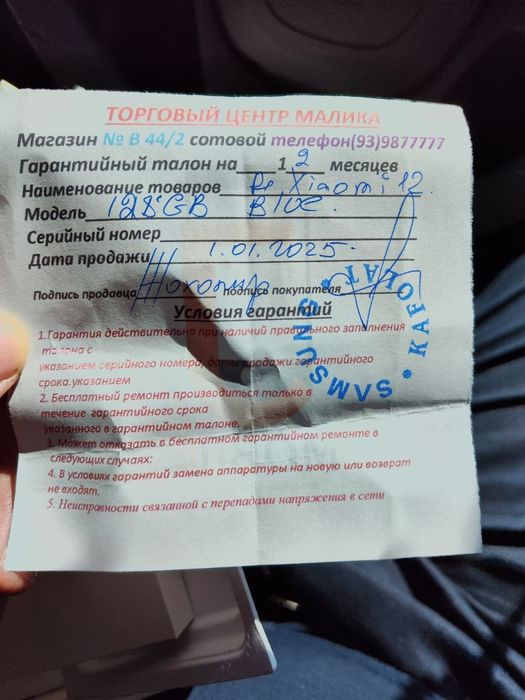 ТОРГОВЫЙ ЦЕНТР МАЛИКА
Магазин № B 44/2 сотовой телефон(93)9877777
Гарантийный талон на 12 месяцев
Наименование товаров Xiaomi 12
Модель 128GB Blue
Серийный номер
Дата продажи 1.01.2025.
Подпись продавца подпись покупателя
Условия гарантий
1.Гарантия действительна при наличий правильного заполнения
талона с
указанием серийного номера, даты продажи гарантийного
срока.указанием
2. Бесплатный ремонт производиться только в
течение гарантийного срока
указанного в гарантийном талоне.
3. Может отказать в бесплатном гарантийном ремонте в
следующих случаях:
4. В условиях гарантий замена аппаратуры на новую или возврат
не входят.
5. Неисправности связанной с перепадами напряжения в сети
SAMSUNG • KAFOLAT •